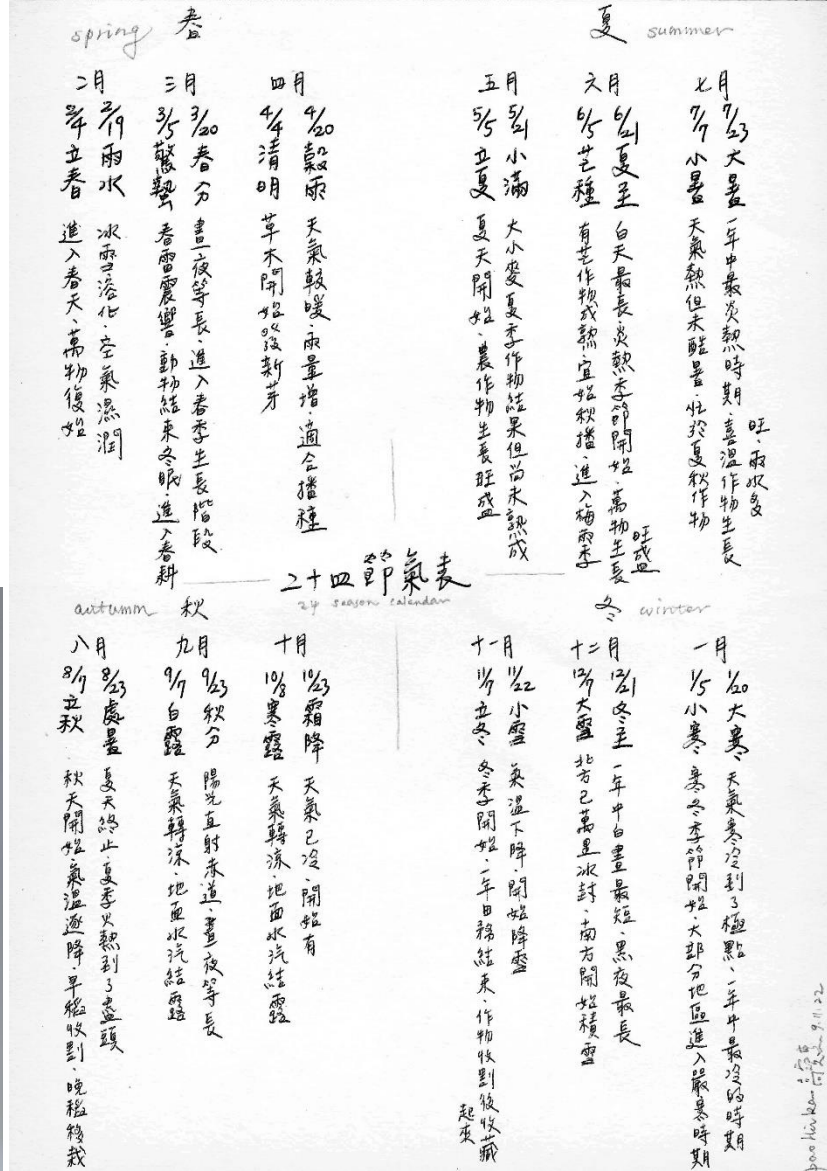 spring 春
二月
2/4 立春 進入春天、萬物復始
2/19 雨水 冰雪溶化、空氣濕潤
三月
3/5 驚蟄 春雷震響、動物結束冬眠、進入春耕
3/20 春分 晝夜等長、進入春季生長階段
四月
4/4 清明 草木開始發新芽
4/20 穀雨 天氣較暖、雨量增、適合播種
夏 summer
五月
5/5 立夏 夏天開始、農作物生長旺盛
5/21 小滿 大小麥夏季作物結果但尚未熟成
六月
6/5 芒種 有芒作物成熟、宜始秋播、進入梅雨季
6/21 夏至 白天最長、炎熱季節開始、萬物生長旺盛
七月
7/7 小暑 天氣熱但未酷暑、忙於夏秋作物
7/23 大暑 一年中最炎熱時期、喜溫作物生長旺、雨水多
二十四節氣表
24 season calendar
autumn 秋
八月
8/7 立秋 秋天開始、氣溫逐降、早稻收割、晚稻移栽
8/23 處暑 夏天終止、夏季火熱到了盡頭
九月
9/7 白露 天氣轉涼、地面水汽結露
9/23 秋分 陽光直射赤道、晝夜等長
十月
10/8 寒露 天氣轉涼、地面水汽結露
10/23 霜降 天氣已冷、開始有
冬 winter
十一月
11/7 立冬 冬季開始、一年田務結束、作物收割後收藏起來
11/22 小雪 氣溫下降、開始降雪
十二月
12/7 大雪 北方已萬里冰封、南方開始積雪
12/21 冬至 一年中白晝最短、黑夜最長
一月
1/5 小寒 寒冬季節開始、大部分地區進入嚴寒時期
1/20 大寒 天氣寒冷到了極點、一年中最冷的時期
9.11.22